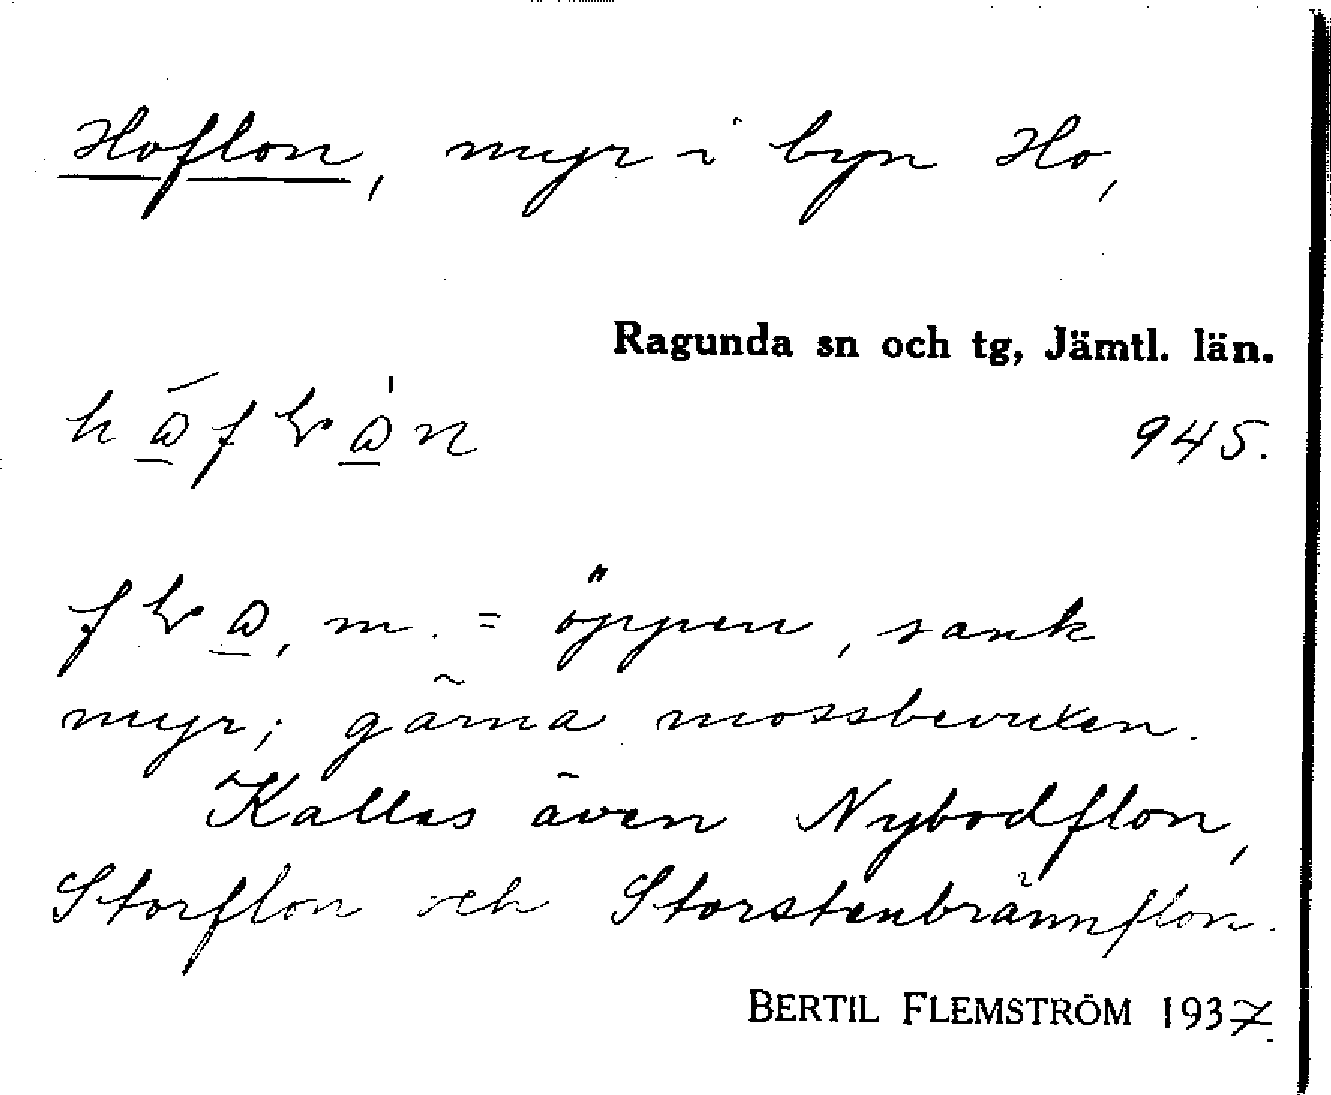 Hoflon, myr i byn Ho,
Ragunda sn och tg, Jämtl. län.
945.
m. = öppen, sank
myr; gärna mossbevuxen.
Kallas även Nybodflon,
Storflon och Storstenbrännflon.
BERTIL FLEMSTRÖM 1937